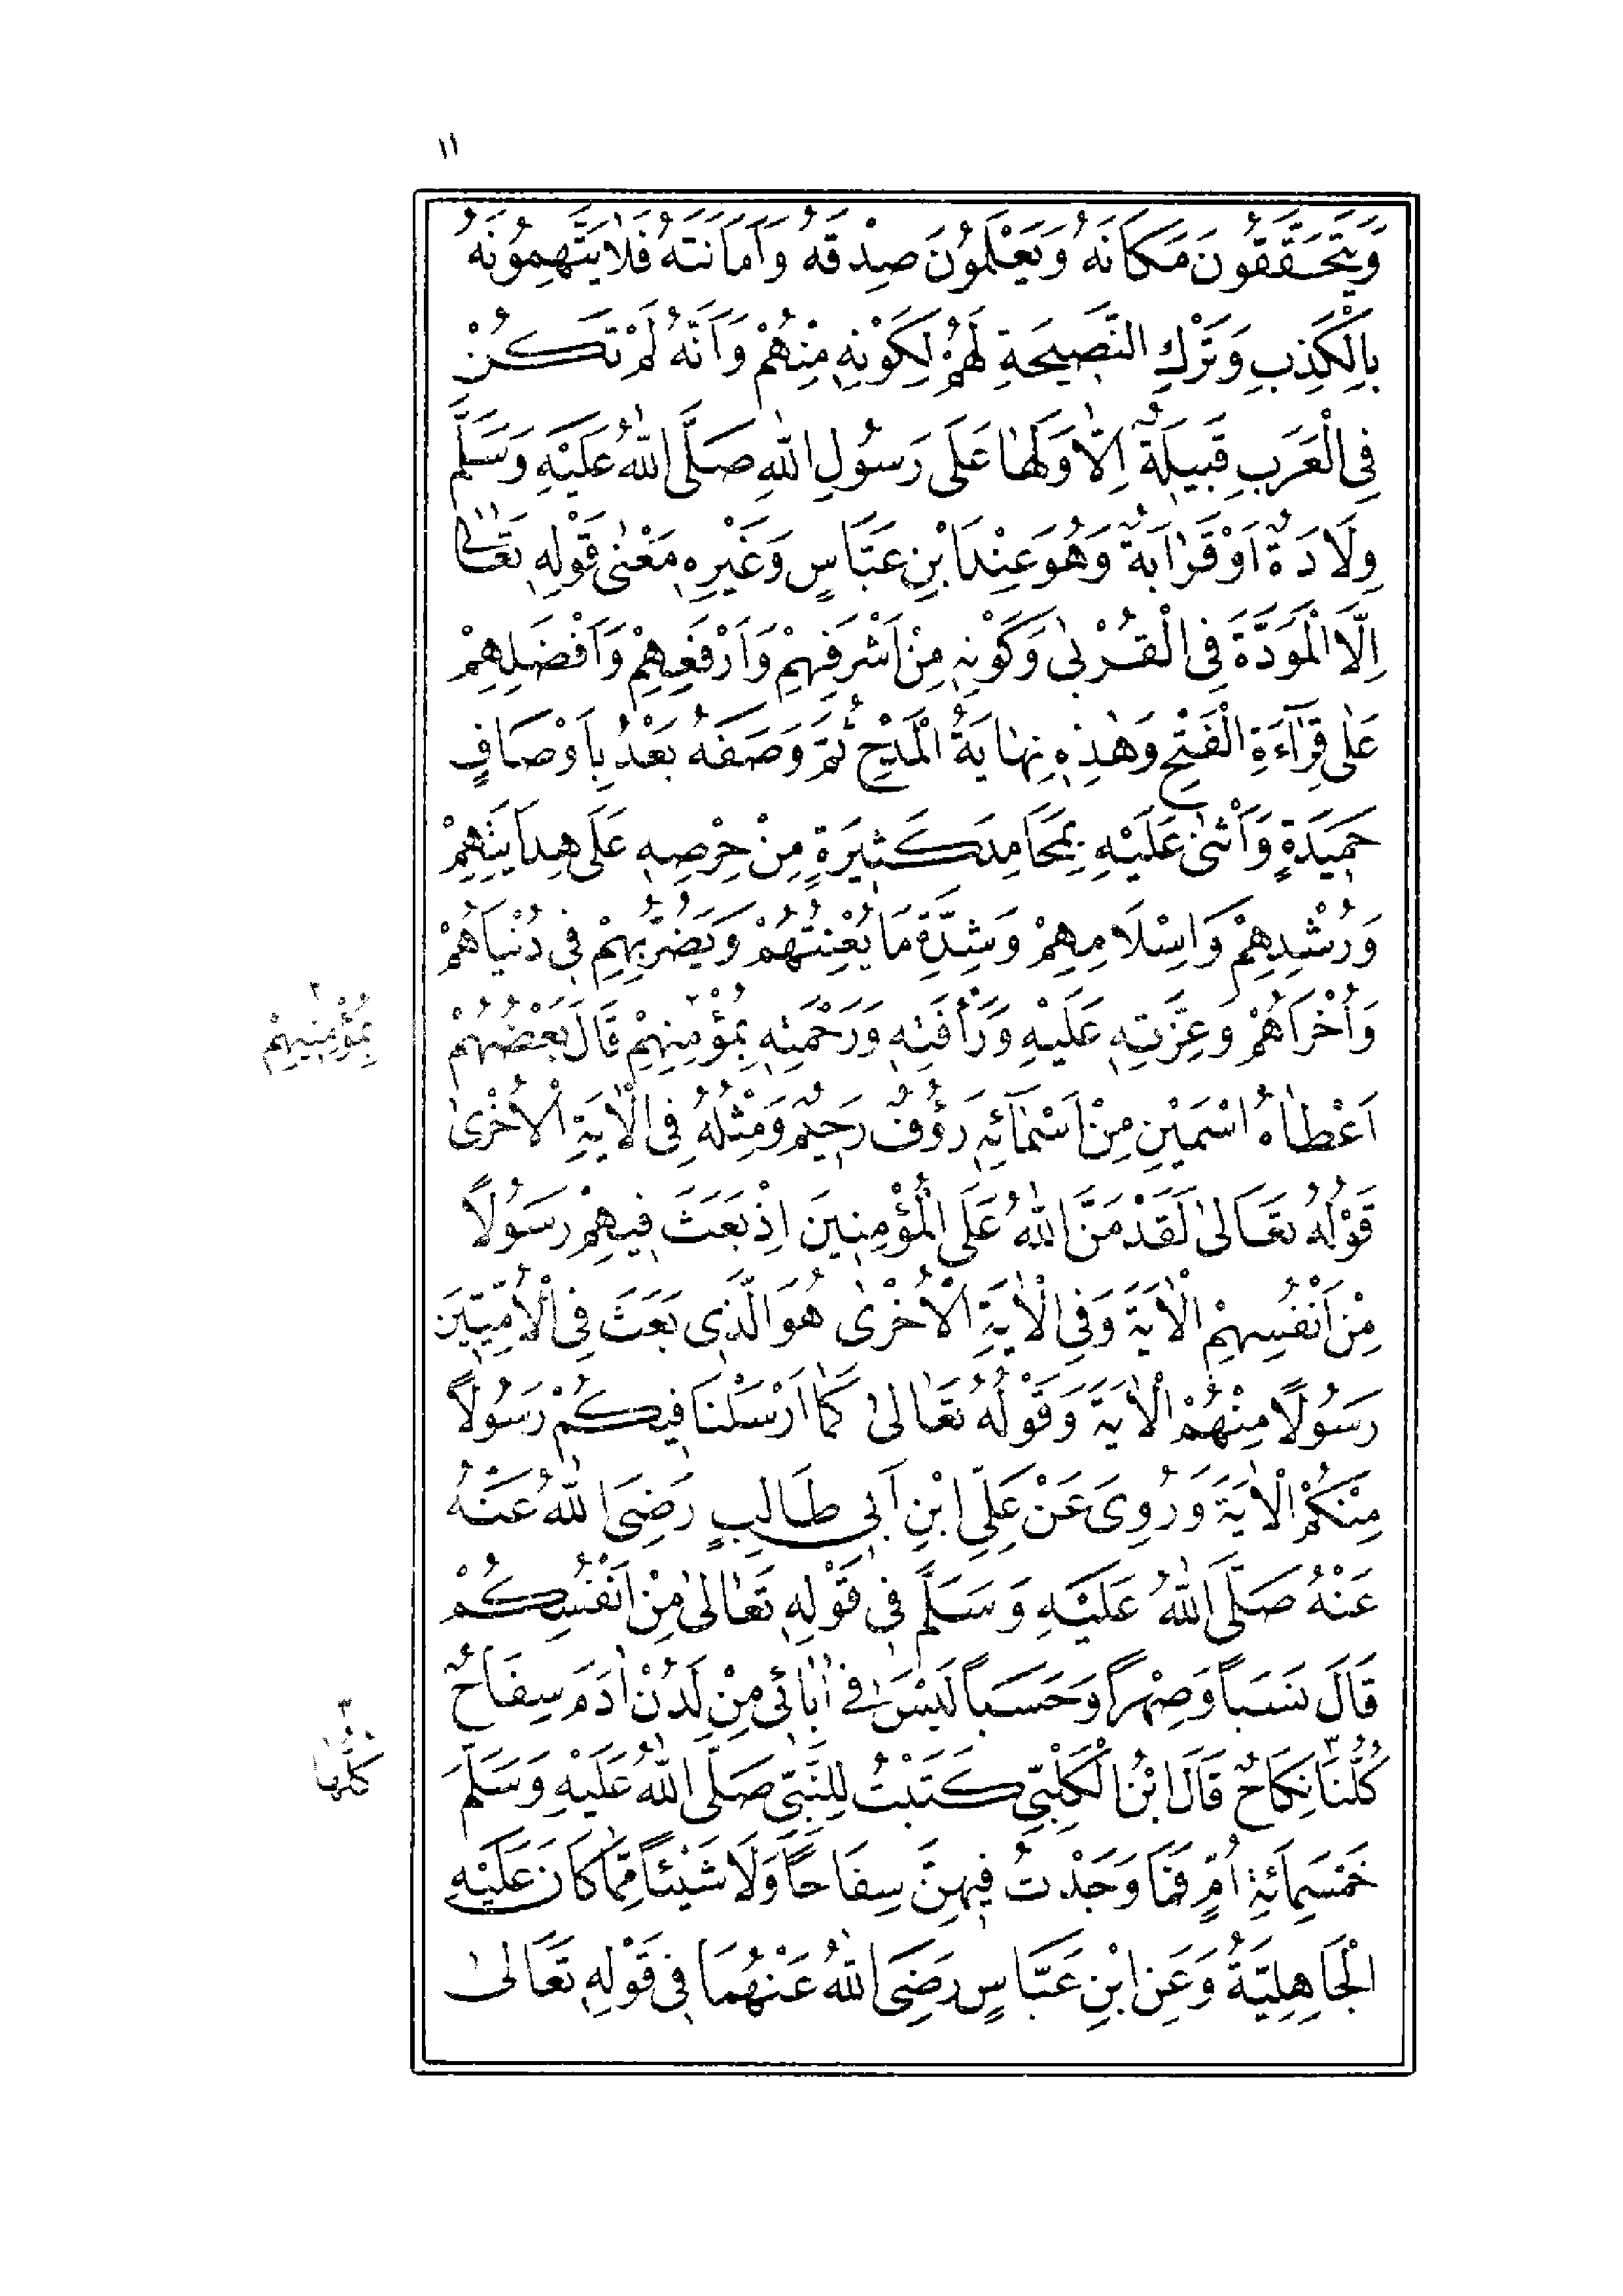 ١١
وَيَتَحَقَّقُونَ مَكَانَهُ وَيَعْلَمُونَ صِدْقَهُ وَاَمَانَتَهُ فَلَا يَتَّهِمُونَهُ
بِالْكَذِبِ وَتَرْكِ النَّصِيحَةِ لَهُمْ لِكَوْنِهِ مِنْهُمْ وَاَنَّهُ لَمْ تَكُنْ
فِى الْعَرَبِ قَبِيلَةٌ اِلَّا وَلَهَا عَلَى رَسُولِ اللّٰهِ صَلَّى اللّٰهُ عَلَيْهِ وَسَلَّمَ
وِلَادَةٌ اَوْ قَرَابَةٌ وَهُوَ عِنْدَ ابْنِ عَبَّاسٍ وَغَيْرِهِ مَعْنٰى قَوْلِهِ تَعَالٰى
اِلَّا الْمَوَدَّةَ فِى الْقُرْبٰى وَكَوْنِهِ مِنْ اَشْرَفِهِمْ وَاَرْفَعِهِمْ وَاَفْضَلِهِمْ
عَلٰى قِرَآءَةِ الْفَتْحِ وَهٰذِهِ نِهَايَةُ الْمَدْحِ ثُمَّ وَصَفَهُ بَعْدُ بِاَوْصَافٍ
حَمِيدَةٍ وَاَثْنٰى عَلَيْهِ بِمَحَامِدَ كَثِيرَةٍ مِنْ حِرْصِهِ عَلَى هِدَايَتِهِمْ
وَرُشْدِهِمْ وَاِسْلَامِهِمْ وَشِدَّةِ مَا يُعْنِتُهُمْ وَيَضُرُّبِهِمْ فِى دُنْيَاهُمْ
وَاُخْرَاهُمْ وَعِزَّتِهِ عَلَيْهِ وَرَأْفَتِهِ وَرَحْمَتِهِ بِمُؤْمِنِهِمْ ٢ قَالَ بَعْضُهُمْ
٢ بِمُؤْمِنِيهِمْ
اَعْطَاهُ اسْمَيْنِ مِنْ اَسْمَآئِهِ رَؤُفٌ رَحِيمٌ وَمِثْلُهُ فِى الْاٰيَةِ الْاُخْرٰى
قَوْلُهُ تَعَالٰى لَقَدْ مَنَّ اللّٰهُ عَلَى الْمُؤْمِنِينَ اِذْ بَعَثَ فِيهِمْ رَسُولًا
مِنْ اَنْفُسِهِمْ الْاٰيَةَ وَفِى الْاٰيَةِ الْاُخْرٰى هُوَ الَّذِى بَعَثَ فِى الْاُمِّيِّينَ
رَسُولًا مِنْهُمْ الْاٰيَةَ وَقَوْلُهُ تَعَالٰى كَمَا اَرْسَلْنَا فِيكُمْ رَسُولًا
مِنْكُمْ الْاٰيَةَ وَرُوِىَ عَنْ عَلِىِّ ابْنِ اَبِى طَالِبٍ رَضِىَ اللّٰهُ عَنْهُ
عَنْهُ صَلَّى اللّٰهُ عَلَيْهِ وَسَلَّمَ فِى قَوْلِهِ تَعَالٰى مِنْ اَنْفُسِكُمْ
قَالَ نَسَبًا وَصِهْرًا وَحَسَبًا لَيْسَ فِى اٰبَائِى مِنْ لَدُنْ اٰدَمَ سِفَاحٌ
كُلُّنَا ٣ نِكَاحٌ قَالَ ابْنُ الْكَلْبِىِّ كَتَبْتُ لِلنَّبِىِّ صَلَّى اللّٰهُ عَلَيْهِ وَسَلَّمَ
٣ كُلُّهَا
خَمْسَمِائَةِ اُمٍّ فَمَا وَجَدْتُ فِيهِنَّ سِفَاحًا وَلَا شَيْئًا مِمَّا كَانَ عَلَيْهِ
الْجَاهِلِيَّةُ وَعَنِ ابْنِ عَبَّاسٍ رَضِىَ اللّٰهُ عَنْهُمَا فِى قَوْلِهِ تَعَالٰى